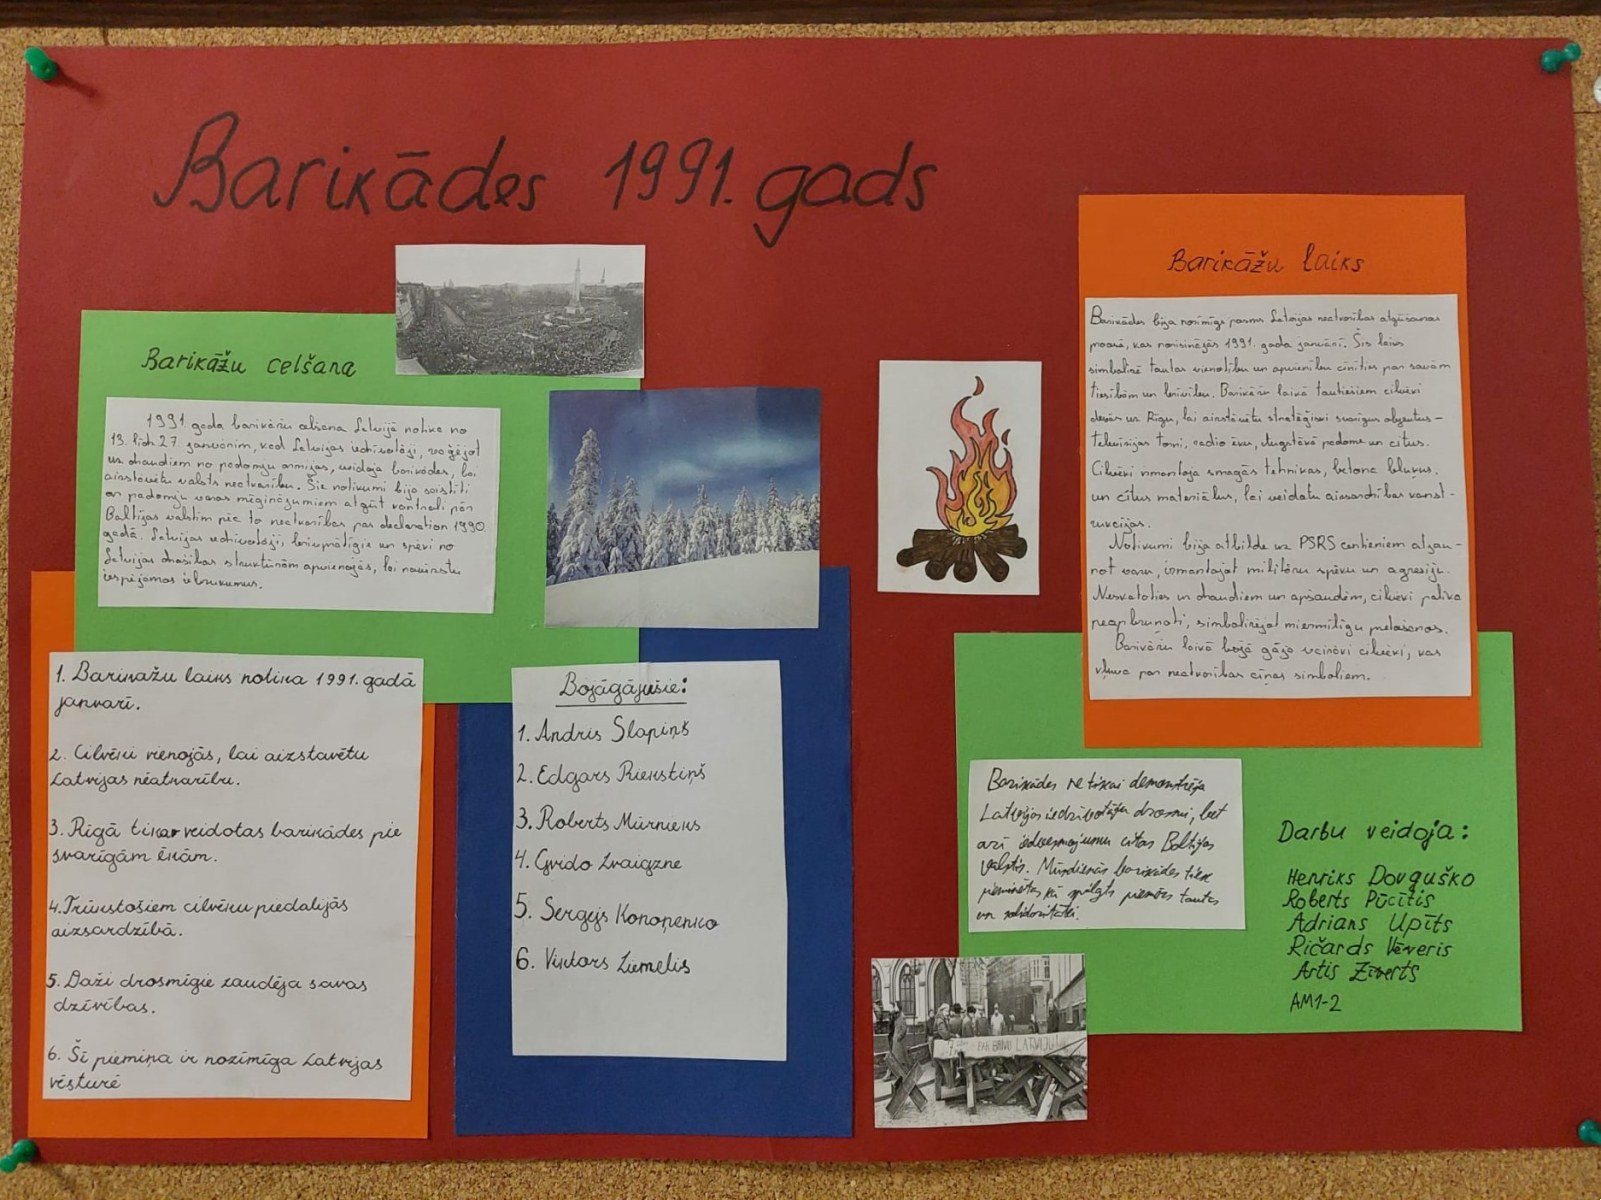 Barikādes 1991. gads
Barikāžu celšana
1991. gada barikāžu celšana Latvijā notika no
13. līdz 27. janvārim, kad Latvijas iedzīvotāji, reaģējot
uz draudiem no padomju armijas, veidoja barikādes, lai
aizstāvētu valsts neatkarību. Šie notikumi bija saistīti
ar padomju varas mēģinājumiem atgūt kontroli pār
Baltijas valstīm pēc to neatkarības pasdeclaration 1990
gadā. Latvijas iedzīvotāji, brīvprātīgie un spēki no
Latvijas drošības struktūrām apvienojās, lai novērstu
iespējamos iebrukumus.
1. Barikažu laiks notika 1991. gadā
janvarī.
2. Cilvēki vienojās, lai aizstavētu
Latvijas neatkarību.
3. Rīgā tika veidotas barikādes pie
svarīgām ēkām.
4. Tūkstošiem cilvēku piedalījās
aizsardzībā.
5. Daži drosmīgie zaudēja savas
dzīvības.
6. Šī piemiņa ir nozīmīga Latvijas
vēsturē
Bojāgājušie:
1. Andris Slapiņš
2. Edgars Riekstiņš
3. Roberts Mūrnieks
4. Gvido Zvaigzne
5. Sergejs Konoņenko
6. Viktors Ziemelis
Barikāžu laiks
Barikādes bija nozīmīgs posms Latvijas neatkarības atgūšanas
procesā, kas norisinājās 1991. gada janvārī. Šis laiks
simbolizē tautas vienotību un apņemību cīnīties par savām
tiesībām un brīvību. Barikāžu laikā tautiešiem cilvēki
devās uz Rīgu, lai aizstāvētu stratēģiski svarīgus objektus -
televīzijas torni, radio ēku, Augstākā padome un citus.
Cilvēki izmantoja smagās tehnikas, betona blokus.
un citus materiālus, lai veidotu aizsardzības konst-
rukcijas.
Notikumi bija atbilde uz PSRS centieniem atjau-
not varu, izmantojot militāru spēku un agresiju.
Neskatoties uz draudiem un apšaudēm, cilvēki palika
neapbruņoti, simbolizējot miermīlīgu pretošanos.
Barikāžu laikā bojā gāja vairāki cilvēki, kas
kļuva par neatkarības cīņas simboliem.
Barikādes ne tikai demonstrēja
Latvijas iedzīvotāju drosmi, bet
arī iedvesmojumu citas Baltijas
valstis. Mūsdienās barikādes tiek
pieminētas kā spilgts piemērs tautas
un solidaritāti.
Darbu veidoja:
Henriks Dovguško
Roberts Pūcītis
Adrians Upīts
Ričards Vēveris
Artis Zīverts
AM1-2
PAR BRĪVU LATVIJU